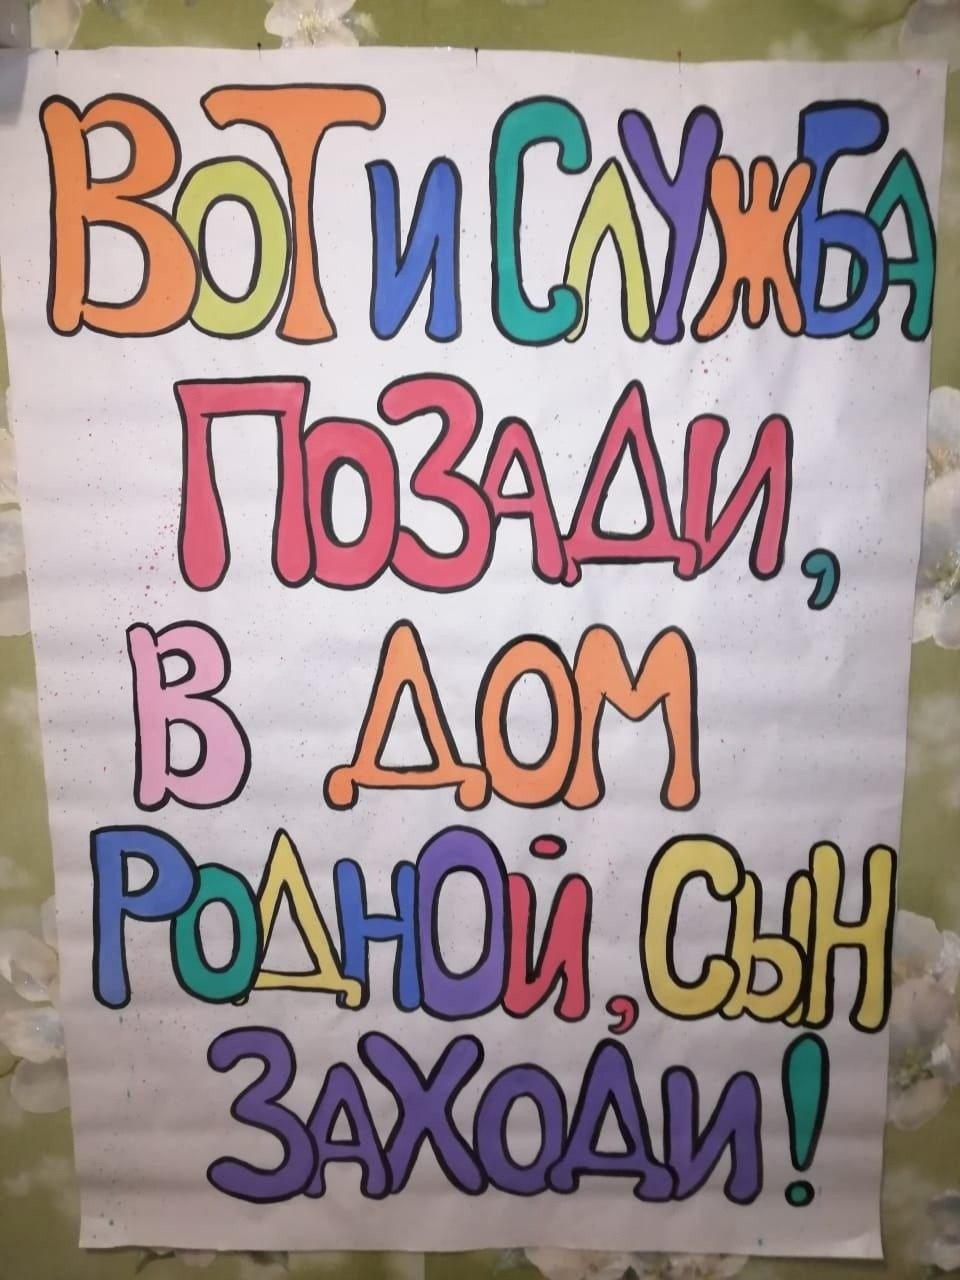 ВОТ И СЛУЖБА
ПОЗАДИ,
В ДОМ
РОДНОЙ, СЫН
ЗАХОДИ!